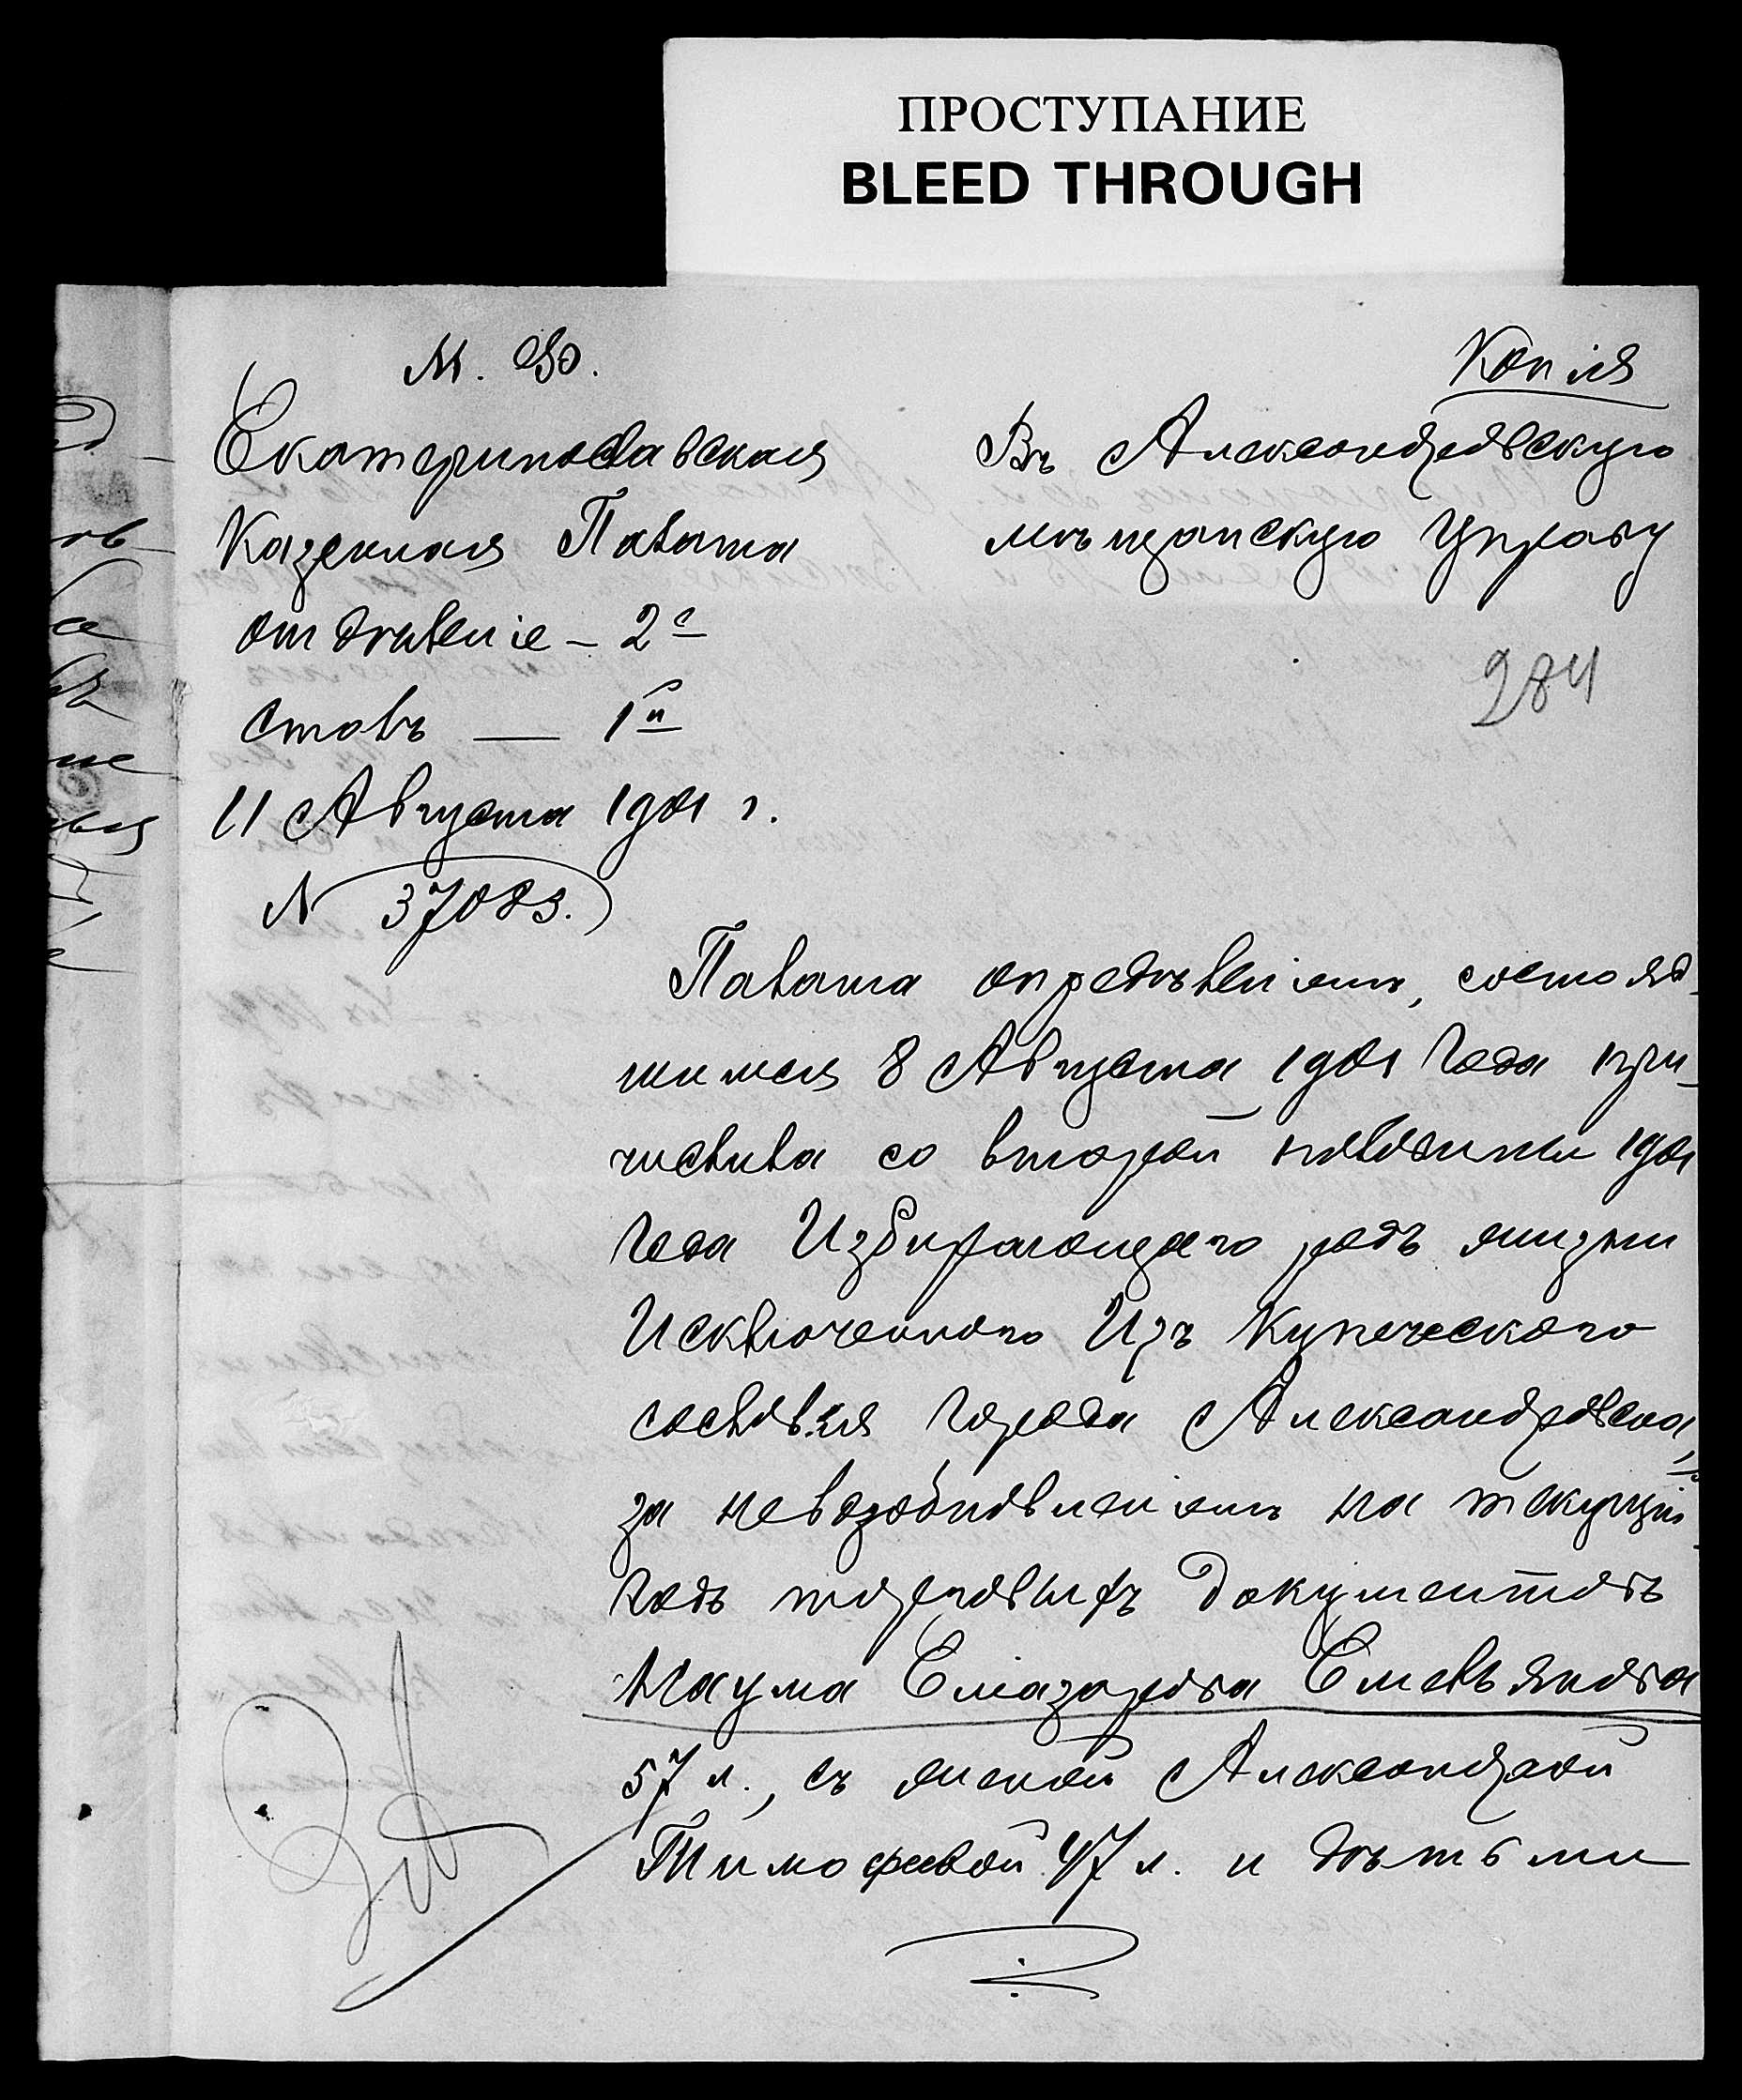 ПРОСТУПАНИЕ
BLEED THROUGH
М. Ф.
Копія
Екатеринославская
Казенная Палата
отдѣленіе – 2е
столъ — 1й
11 Августа 1901 г.
№ 37083.
Въ Александровскую
мѣщанскую Управу
284
Палата опредѣленіемъ, состояв-
шимся 8 Августа 1901 года при-
числила со второй половины 1901
года Избирающаго родъ жизни
Исключеннаго Изъ Купеческаго
сословія города Александровска,
за невозобновленіемъ на текущій
годъ торговыхъ документовъ
Наума Елазарова Емельянова
57 л., съ женой Александрой
Тимофеевой 47 л. и дѣтьми